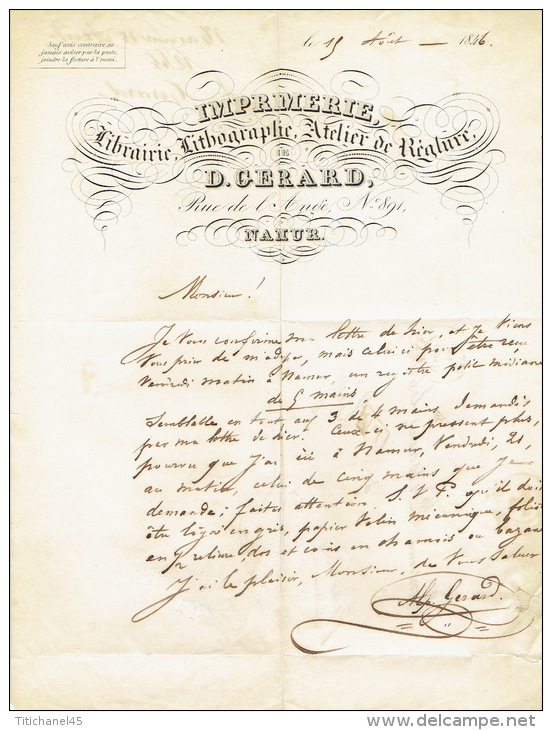 Sauf avis contraire, ne
jamais aviser par la poste,
joindre la facture à l'envoi.
le 15 Août — 1846.
IMPRMERIE,
Librairie, Lithographie, Atelier de Réglure,
DE
D. GERARD,
Rue de l'Ange, N° 891,
NAMUR.
Monsieur!
Je vous confirme ma lettre de hier, et je viens
vous prier de m'adresser, mais celui ci pour être reçu
Vendredi matin à Namur, un registre petit médiane
de 5 mains,
Semblable en tout aux 3 de 4 mains demandés
par ma lettre de hier. Ceux-ci ne pressent plus,
pourvu que j'ai ici à Namur, Vendredi, 21,
au matin, celui de cinq mains que je
demande; faites attention S.V.P. qu'il doit
être ligné en gris, papier Vélin mécanique, folio
en 1/2 reliure, dos et coins en chamois ou bazane
J'ai le plaisir, Monsieur, de vous saluer
Gerard.
Titichanel45
delcampe.net